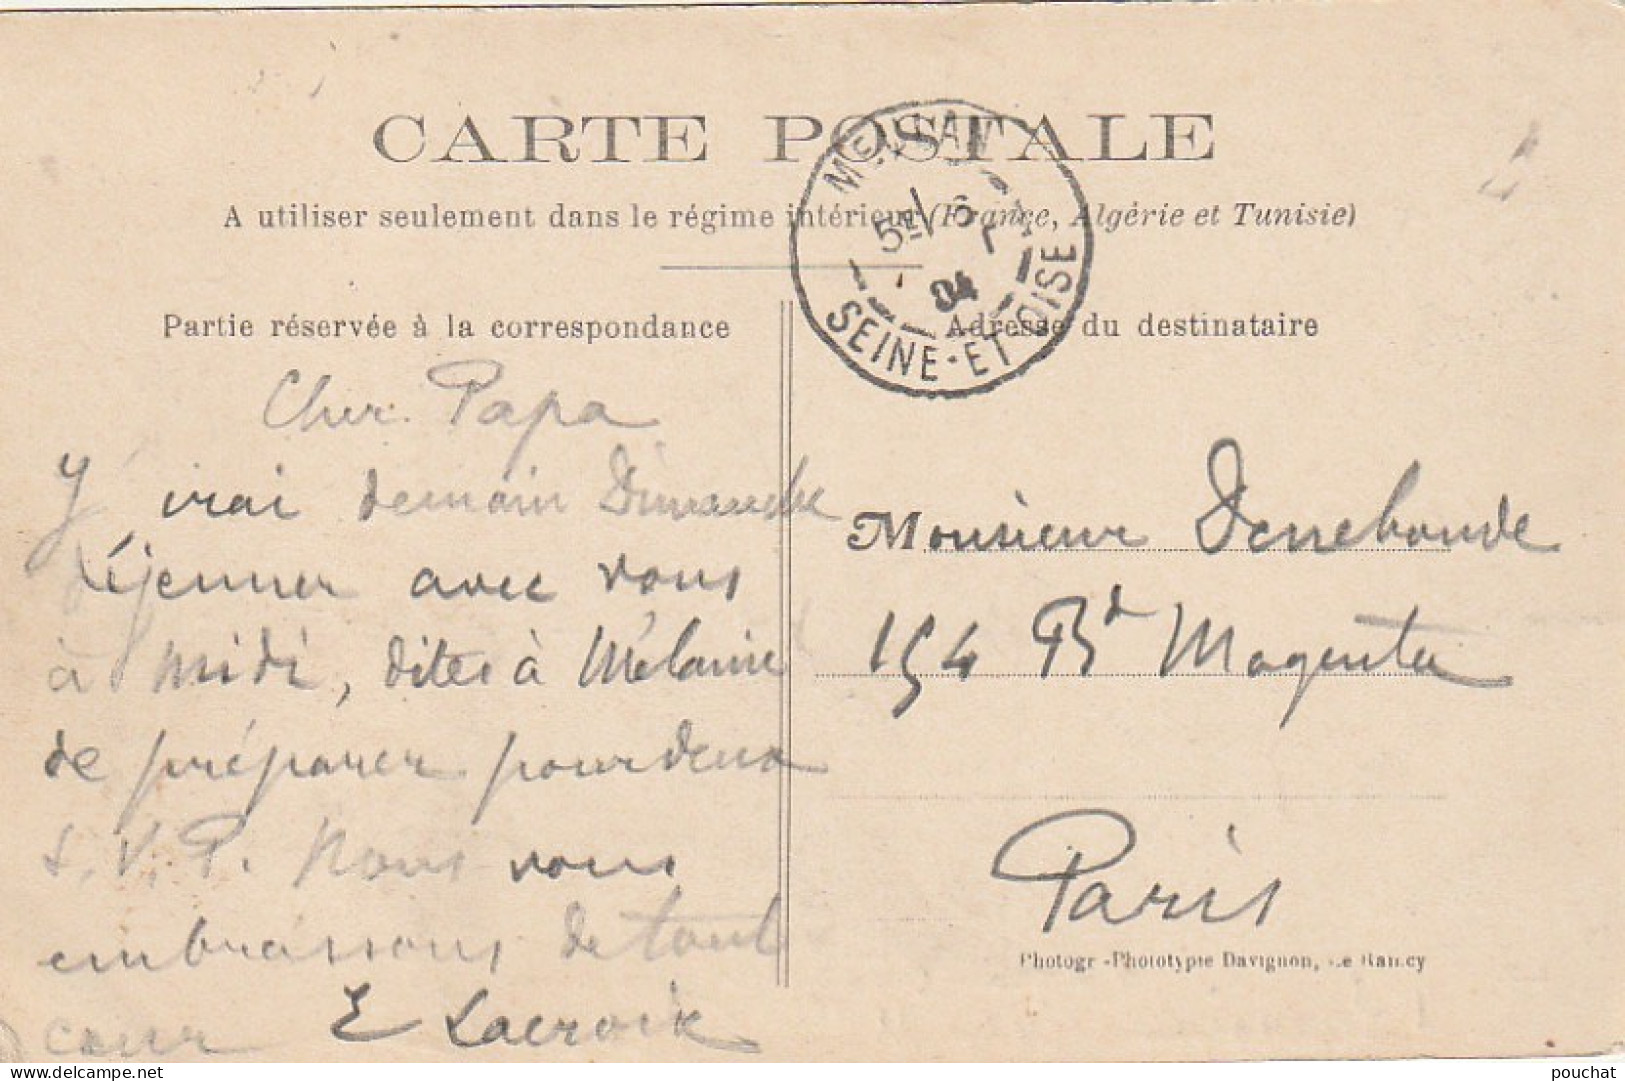 CARTE POSTALE
A utiliser seulement dans le régime intérieur (France, Algérie et Tunisie)
MEULAN
5E 6
04
SEINE-ET-OISE
Partie réservée à la correspondance
Cher Papa
J'irai demain Dimanche
déjeuner avec vous
à midi, dites à Mélanie
de préparer pour deux
S.V.P. Nous vous
embrassons de tout
cœur E Lacroix
Adresse du destinataire
Monsieur
154 Bd Magenta
Paris
Photogr-Phototypie Davignon, Le Raincy
pouchat